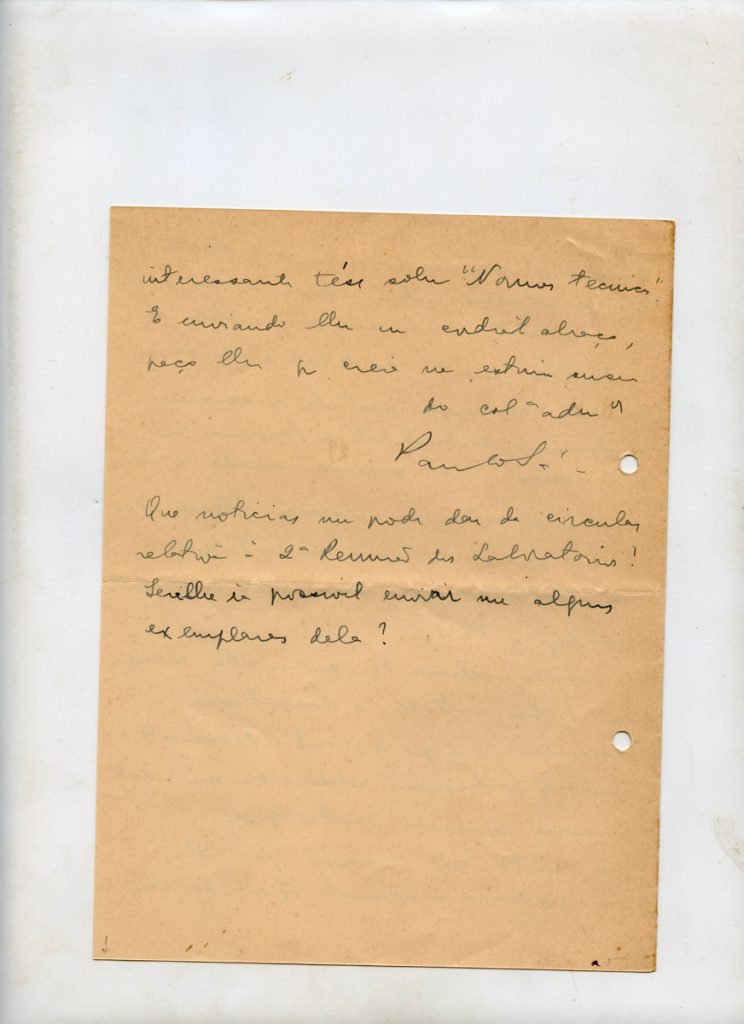 interessante tése sobre "Normas tecnicas".
E enviando lhe um cordial abraço,
peço lhe q creia na estima
do col^a ad^or
Paulo Sá
Que noticias me pode dar da circular
relativa á 2ª Reunião dos Laboratorios?
Ser-lhe ia possivel enviar me alguns
exemplares dela?